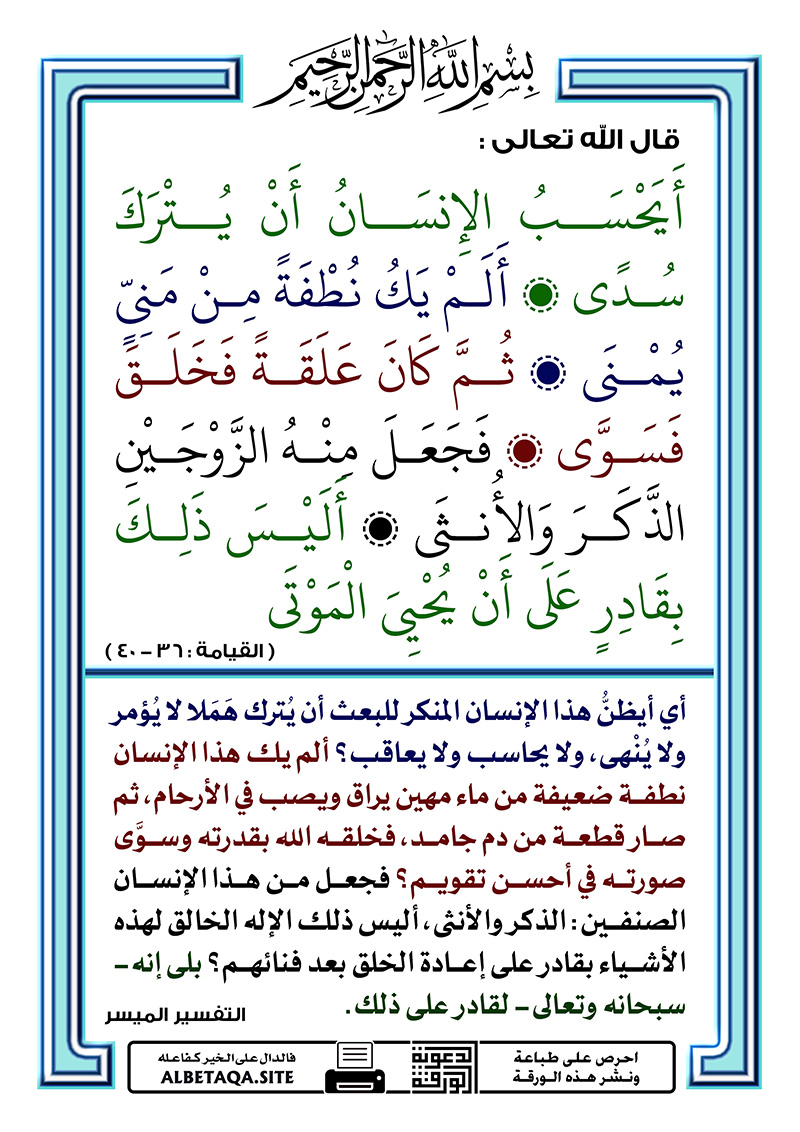 بِسْمِ اللَّهِ الرَّحْمَنِ الرَّحِيمِ
قال الله تعالى :
أَيَحْسَبُ الإِنسَانُ أَنْ يُتْرَكَ
سُدًى ۞ أَلَمْ يَكُ نُطْفَةً مِنْ مَنِيٍّ
يُمْنَى ۞ ثُمَّ كَانَ عَلَقَةً فَخَلَقَ
فَسَوَّى ۞ فَجَعَلَ مِنْهُ الزَّوْجَيْنِ
الذَّكَرَ وَالأُنثَى ۞ أَلَيْسَ ذَلِكَ
بِقَادِرٍ عَلَى أَنْ يُحْيِيَ الْمَوْتَى
( القيامة : ٣٦ - ٤٠ )
أي أيظنُّ هذا الإنسان المنكر للبعث أن يُترك هَمَلا لا يُؤمر
ولا يُنْهى، ولا يحاسب ولا يعاقب؟ ألم يك هذا الإنسان
نطفة ضعيفة من ماء مهين يراق ويصب في الأرحام، ثم
صار قطعة من دم جامد، فخلقه الله بقدرته وسوَّى
صورته في أحسن تقويم؟ فجعل من هذا الإنسان
الصنفين : الذكر والأنثى، أليس ذلك الإله الخالق لهذه
الأشياء بقادر على إعادة الخلق بعد فنائهم؟ بلى إنه -
سبحانه وتعالى - لقادر على ذلك.
التفسير الميسر
احرص على طباعة
ونشر هذه الورقة
الورقة الدعوية
فالدال على الخير كفاعله
ALBETAQA.SITE